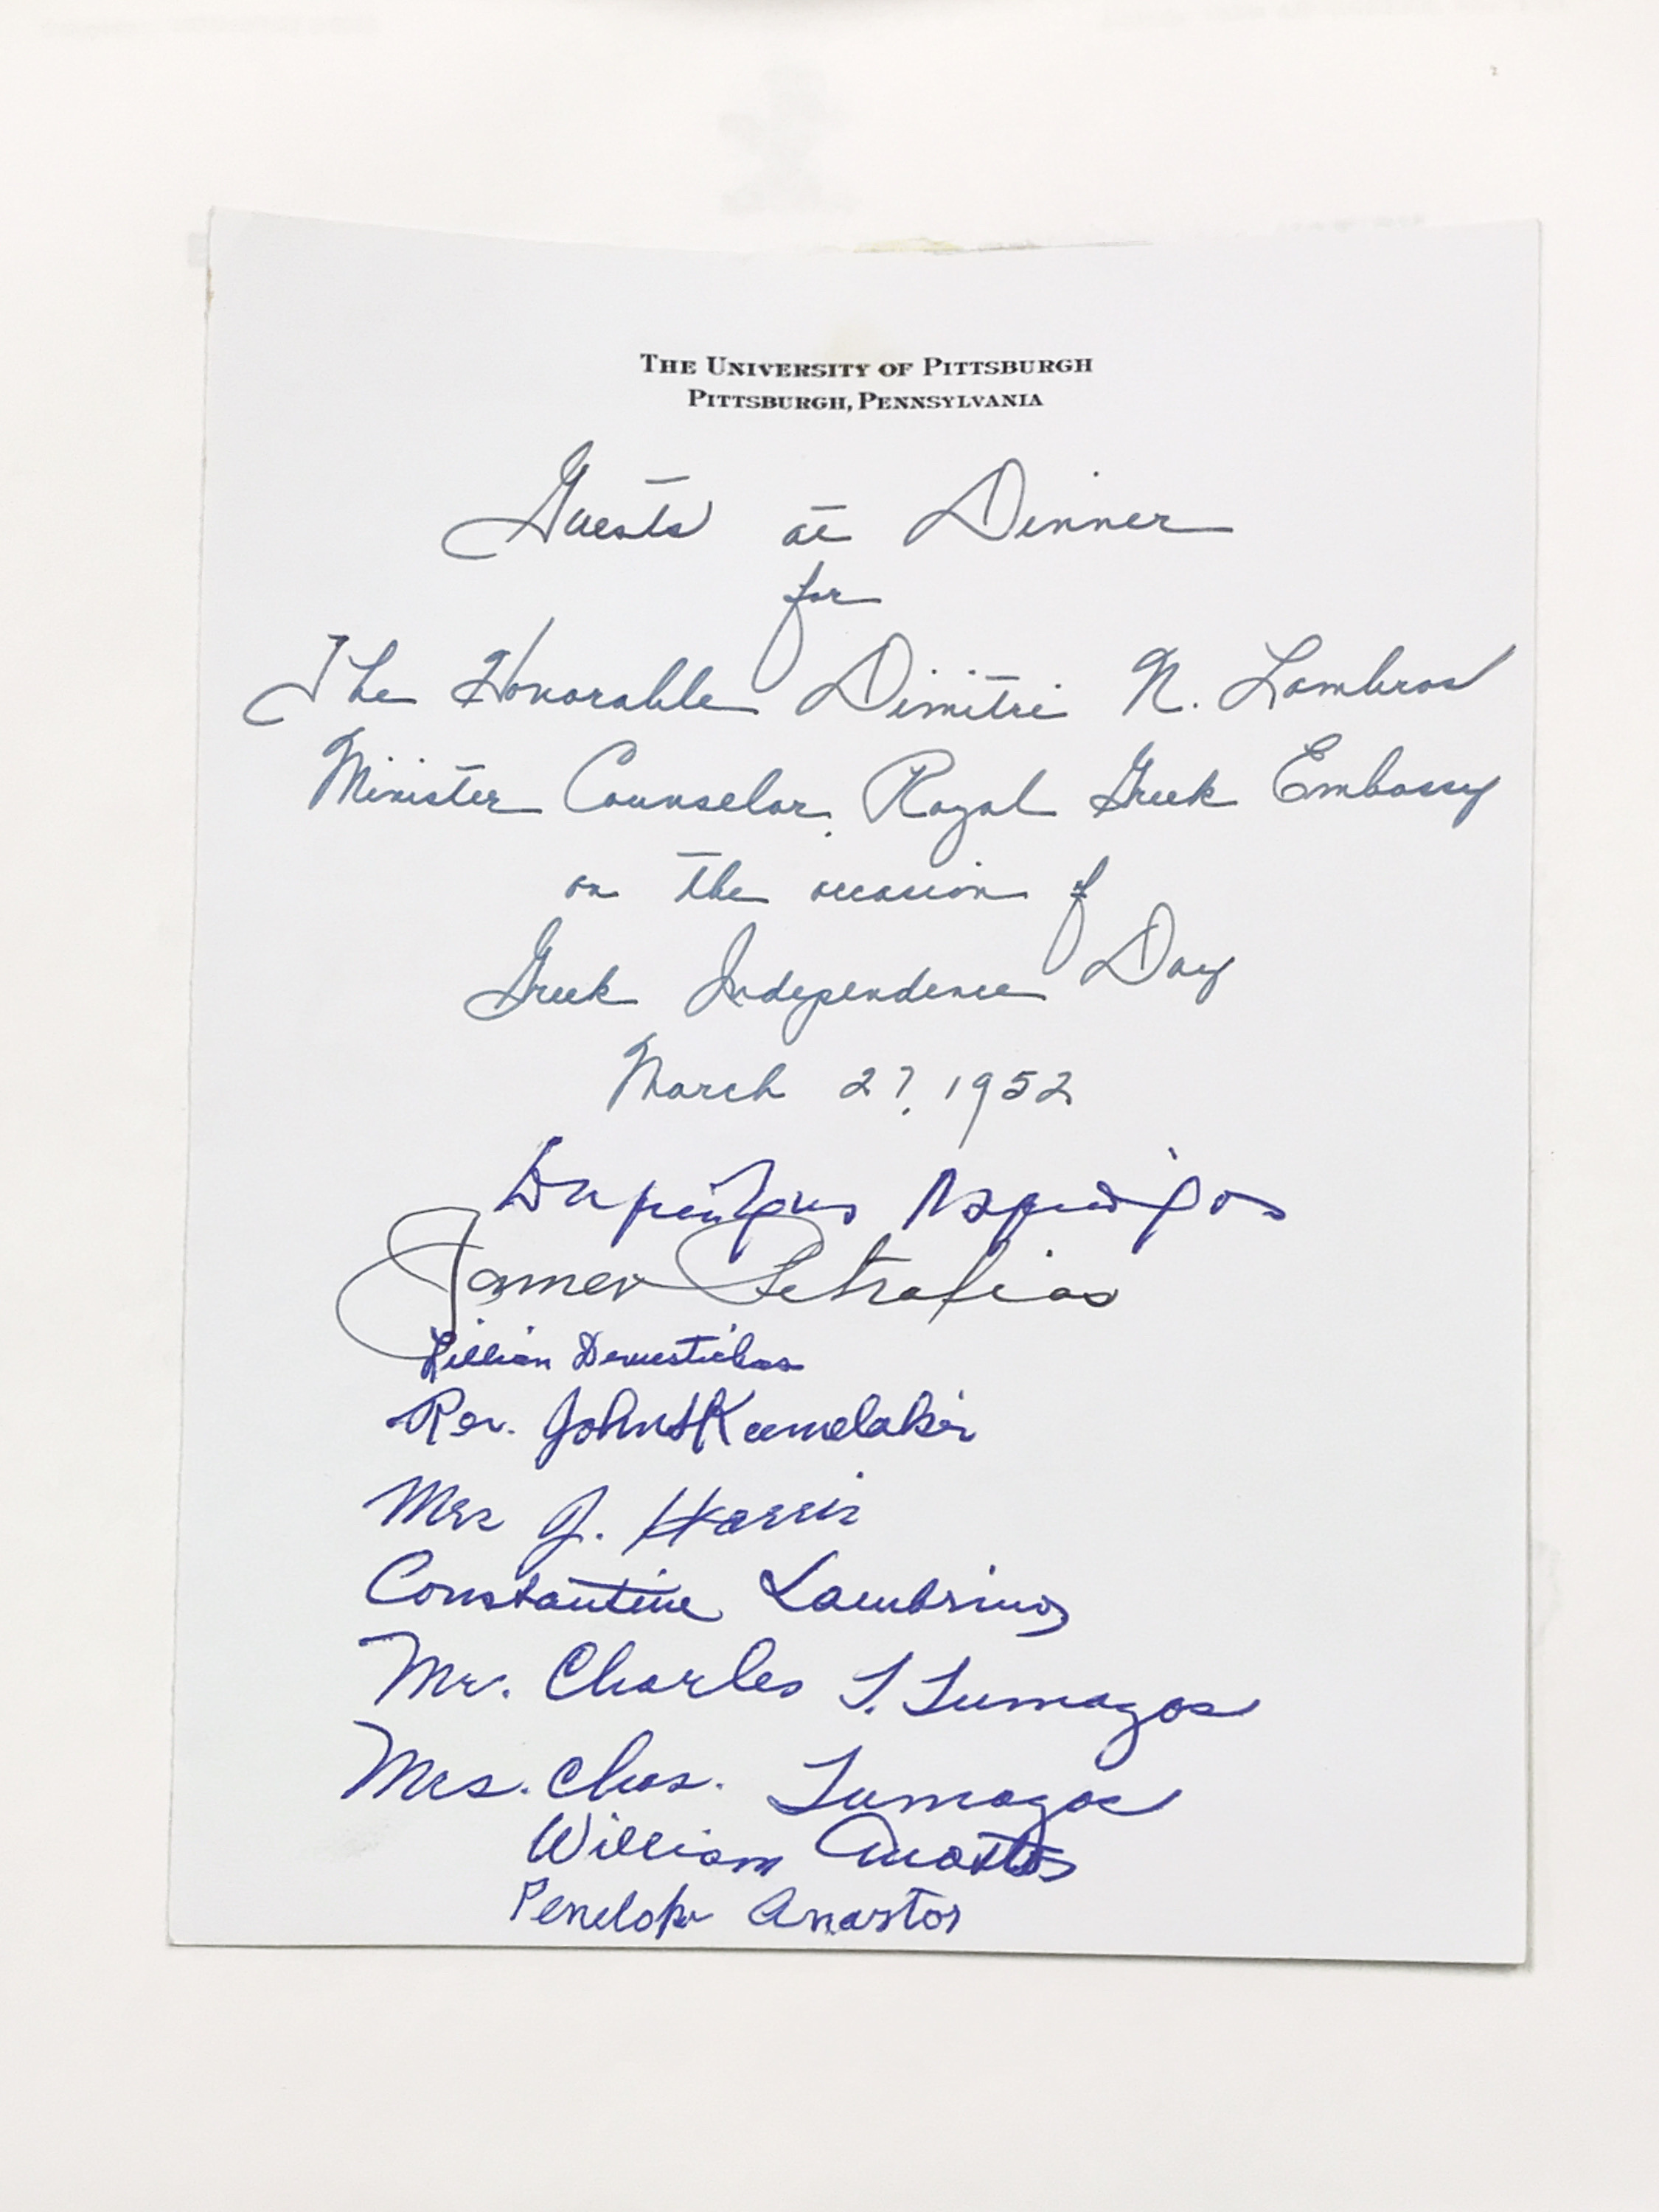 THE UNIVERSITY OF PITTSBURGH
PITTSBURGH, PENNSYLVANIA
Guests at Dinner
for
The Honorable Dimitri N. Lambros
Minister Counselor, Royal Greek Embassy
on the occasion of
Greek Independence Day
March 27, 1952
James Petrafias
Lillian Demestichas
Rev. John
Mrs J. Harris
Constantine Lambrinos
Mr. Charles T. Tumazos
Mrs. Chas. Tumazos
William Anastos
Penelope Anastos